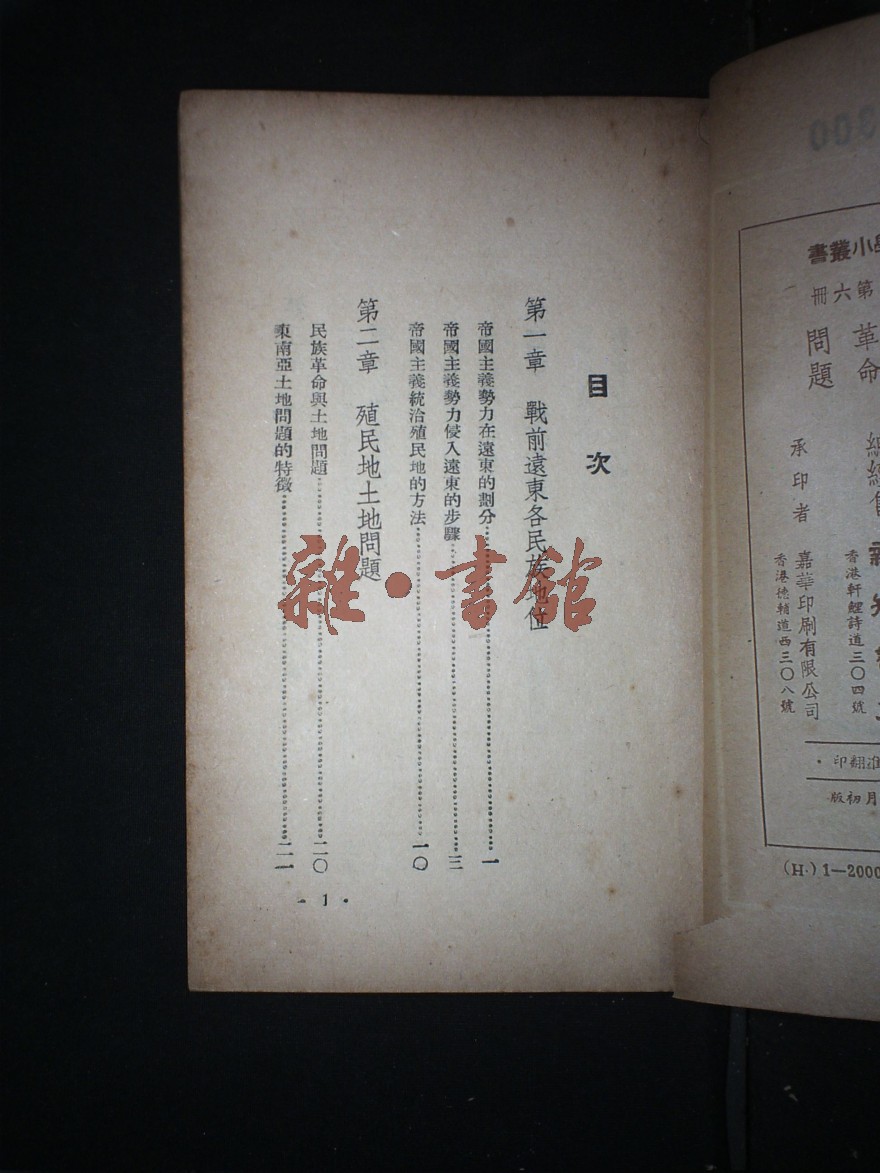 300
學小叢書
第六冊
革命
問題
承印者
香港軒鯉詩道三〇四號
嘉華印刷有限公司
香港德輔道西三〇八號
准翻印·
月初版
(H.) 1—2000
目次
第一章 戰前遠東各民族地位
帝國主義勢力在遠東的劃分……一
帝國主義勢力侵入遠東的步驟……三
帝國主義統治殖民地的方法……一〇
第二章 殖民地土地問題
民族革命與土地問題……二〇
東南亞土地問題的特徵……二一
· 1 ·
雜·書館